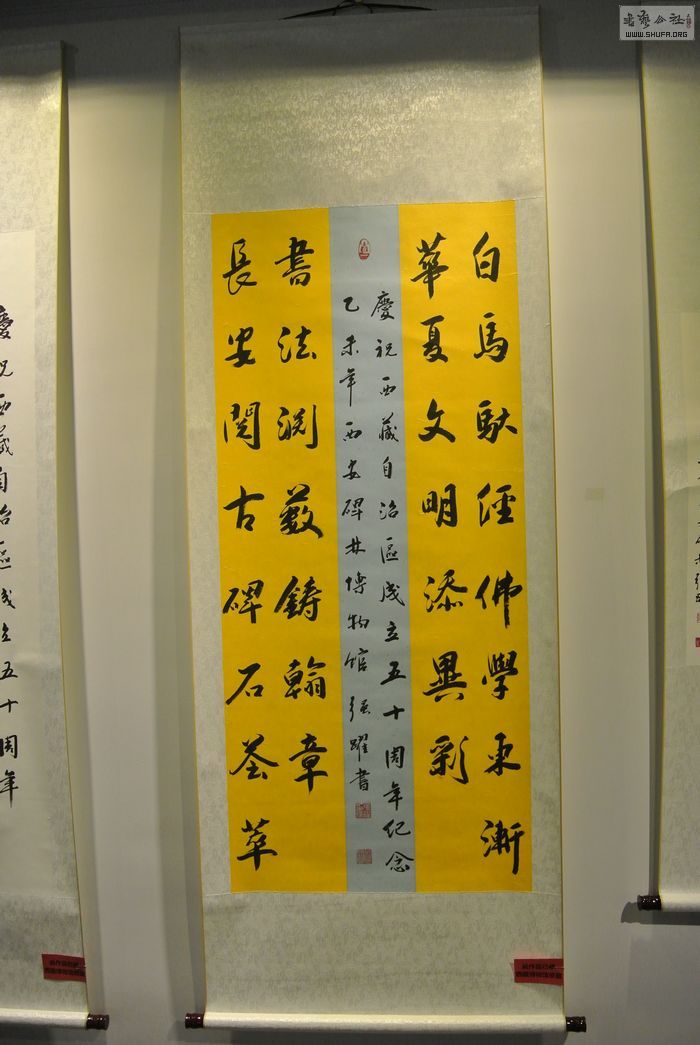 書藝公社
WWW.SHUFA.ORG
白馬馱經佛學東漸
華夏文明添異彩
慶祝西藏自治區成立五十周年紀念
乙未年西安碑林博物館強躍書
長安閱古碑石薈萃
書法渕薮鑄翰章
慶祝西藏自治區成立五十周年